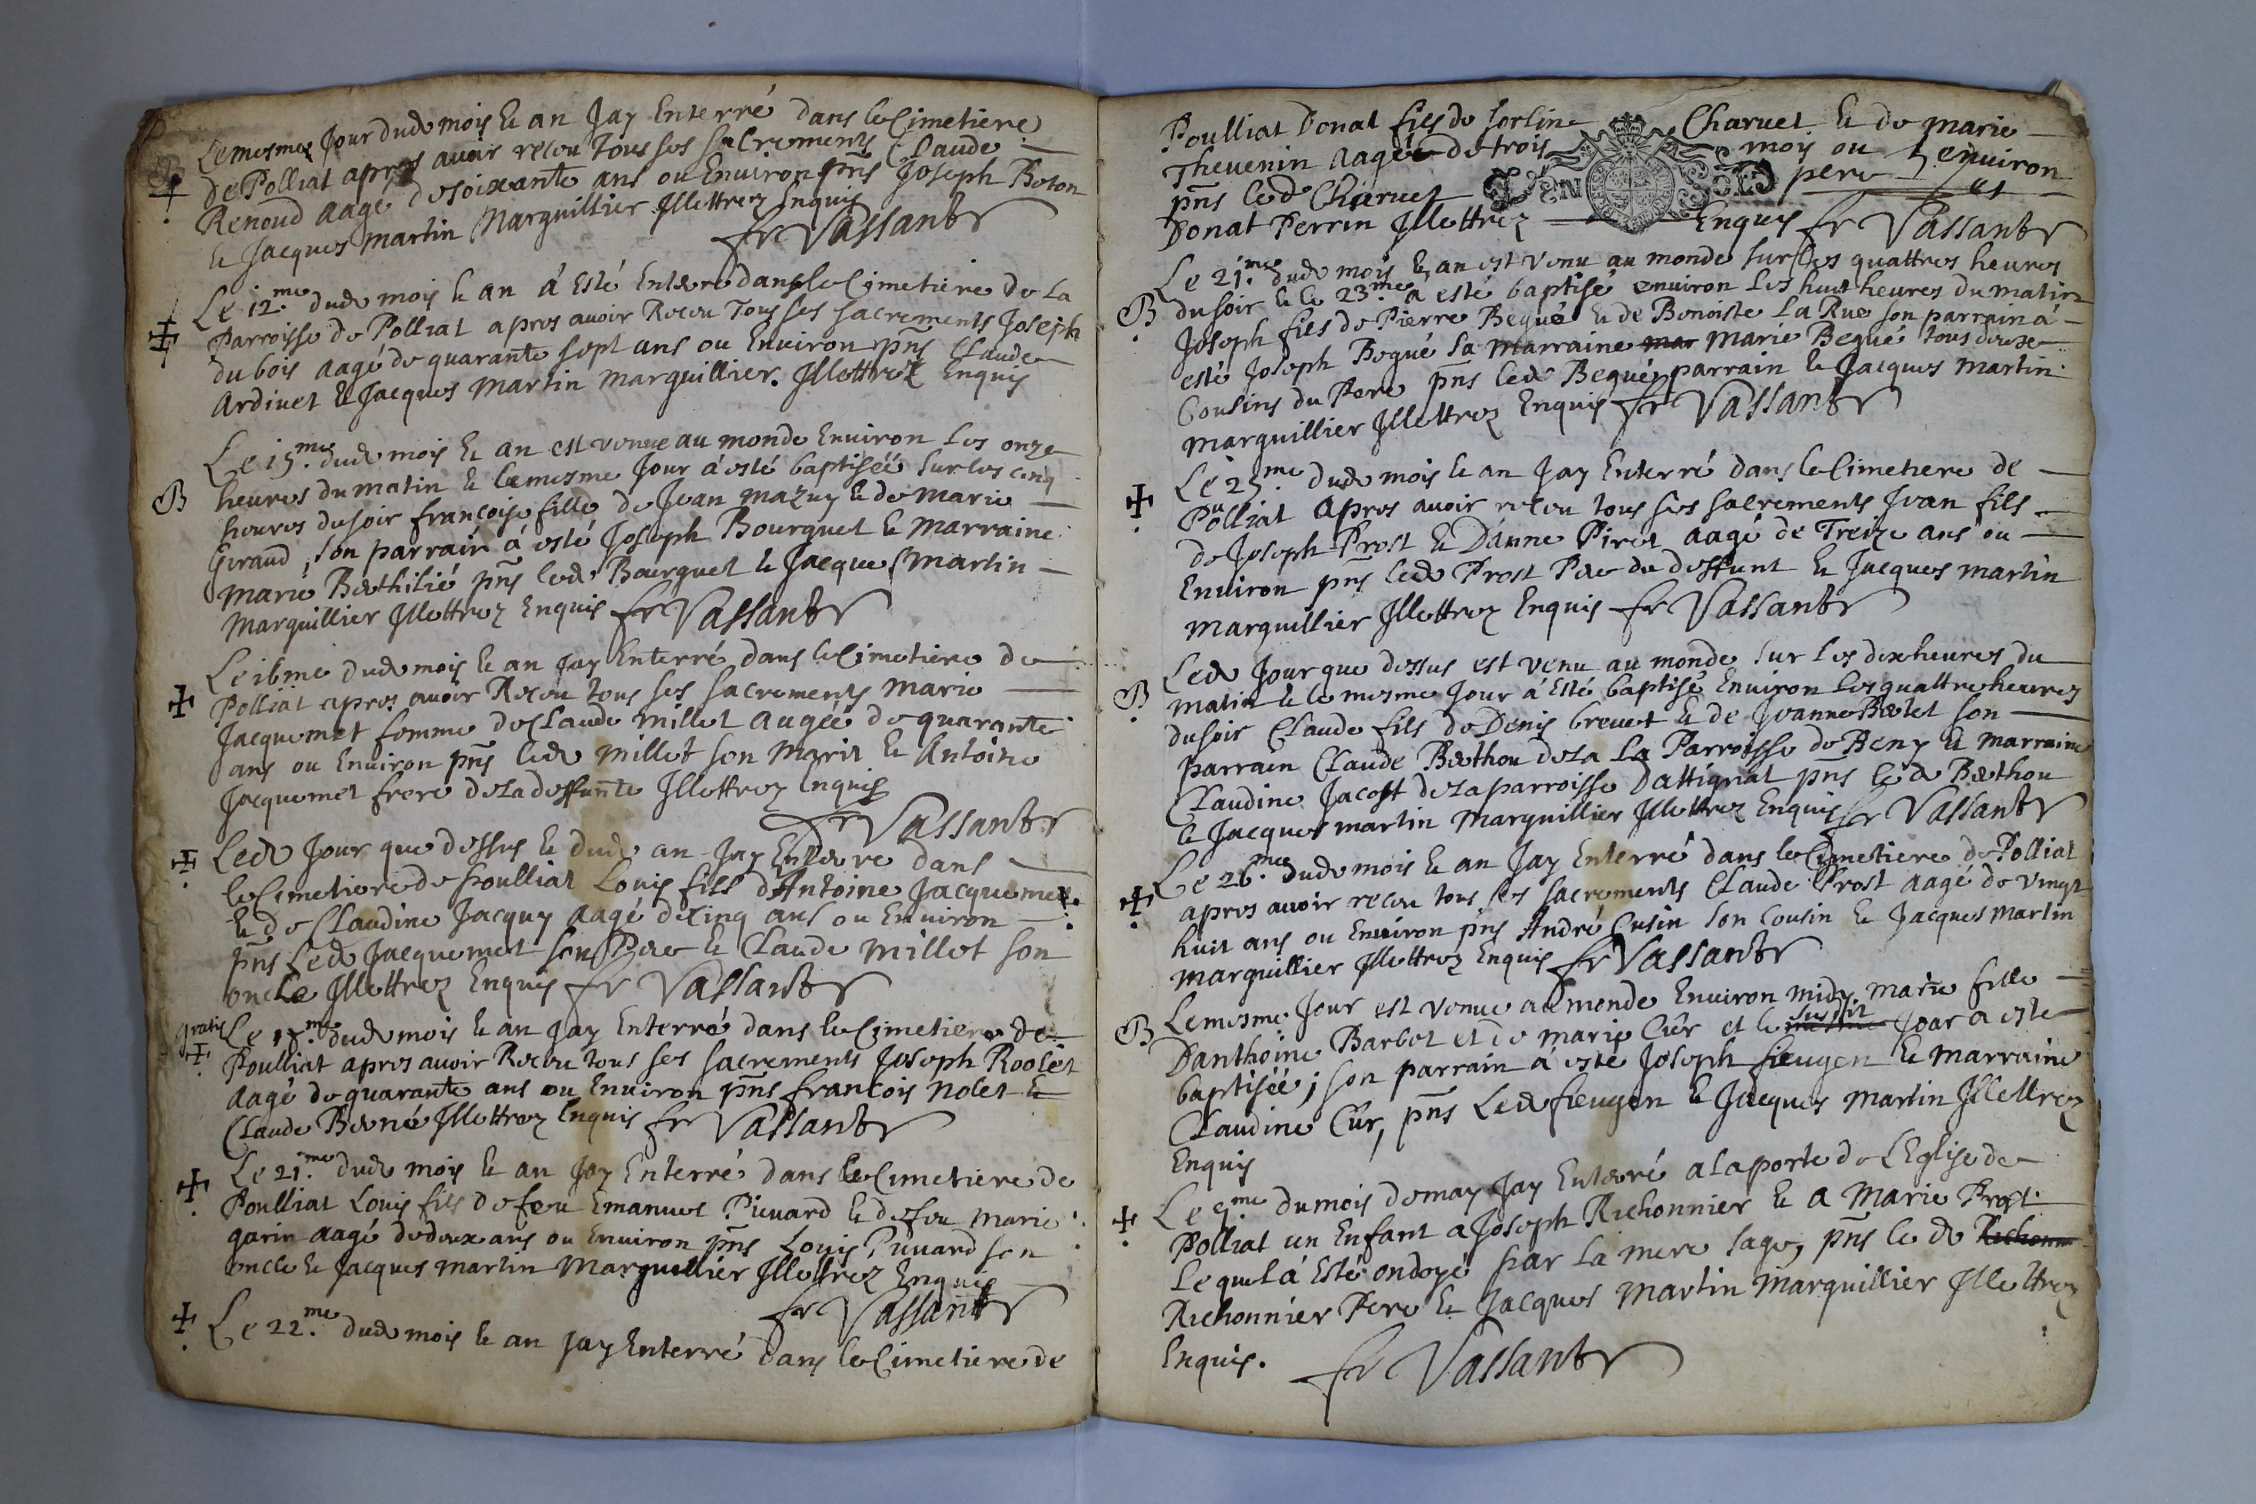 Le mesme Jour dud mois & an Jay Enterré dans le Cimetiere
de Polliat apres avoir receu tous ses sacrements Claude
Renoud aagé de soixante ans ou Environ pns Joseph Boton
& Jacques martin Marguillier Illettrez Enquis
fr Vassant
Le 12.me dud mois & an á Esté Enterré dans le Cimetiere de La
Parroisse de Polliat apres avoir Receu Tous ses sacrements Joseph
dubois aagé de quarante sept ans ou Environ pns Claude
Ardinet & Jacques Martin marguillier. Illettrez Enquis
B Le 15.me dud mois & an est venue au monde Environ Les onze
heures du matin & le mesme Jour á esté baptiséé sur les cinq
heures du soir francoise fille de Jean mazuy & de Marie
Giraud, son parrain á esté Joseph Bourguet & Marraine
Marie Berthilié pns led Bourguet & Jacques Martin
Marguillier Illettrez Enquis fr Vassant
Le 16me dud mois & an Jay Enterré dans le Cimetiere de
Polliat apres avoir Receu tous ses sacrements Marie
Jacquemet femme de Claude millet aagéé de quarante
ans ou Environ pns led millet son Mary & Antoine
Jacquemet frere de la deffunte Illettrez Enquis
fr Vassant
Led Jour que dessus & dud an Jay Enterre dans
le Cimetiere de poulliat Louis fils d'Antoine Jacquemet
& de Claudine Jacquy aagé de cinq ans ou Environ
pns Led Jacquemet son Pere & Claude millet son
oncle Illettrez Enquis fr Vassant
gratis Le 18.me dud mois & an Jay Enterré dans le Cimetiere de
Poulliat apres avoir Receu tous ses sacrements Joseph Roolet
aagé de quarante ans ou Environ pns francois Nolet &
Claude Berné Illettrez Enquis fr Vassant
Le 21.me dud mois & an Jay Enterré dans le Cimetiere de
Poulliat Louis fils de feu Emanuel Piuuard & de feu Marie
garin aagé de deux ans ou Environ pns Louis Piuuard son
oncle & Jacques martin Marguillier Illettrez Enquis
fr Vassant
Le 22.me dud mois & an Jay Enterré dans le Cimetiere de
Poulliat Donat fils de sorlin Charuet & de marie
Thevenin aagé de trois mois ou environ
pns led Charuet pere &
Donat Perrin Illettrez Enquis fr Vassant
B Le 21.me dud mois & an est venu au monde sur Les quattres heures
du soir & le 23.me á esté baptisé environ Les huit heures du matin
Joseph fils de Pierre Begué & de Benoiste La Rue son parrain á
esté Joseph Begué sa marraine mar marie Begué tous deux
Cousins du Pere pns led Begué parrain & Jacques Martin
marguillier Illettrez Enquis fr Vassant
Le 25.me dud mois & an Jay Enterré dans le Cimetiere de
Poulliat apres avoir receu tous ses sacrements Jean fils
de Joseph Prost & Danne Piret aagé de Treize ans ou
Environ pns led Prost Pere du deffunt & Jacques martin
marguillier Illettrez Enquis fr Vassant
B Led Jour que dessus est venu au monde sur Les dix heures du
matin & le mesme Jour á Esté baptisé Environ Les quattre heures
du soir Claude fils de Denis brevet & de Jeanne Bertet son
parrain Claude Berthou de la La Parroisse de Beny & Marraine
Claudine Jacost de la parroisse Dattignat pns led Berthou
& Jacques martin Marguillier Illettrez Enquis fr Vassant
Le 26.me dud mois & an Jay Enterré dans le Cimetiere de Polliat
apres avoir receu tous ses sacrements Claude Prost aagé de vingt
huit ans ou Environ pns André Cusin son Cousin & Jacques Martin
marguillier Illettrez Enquis fr Vassant
B Le mesme Jour est venue au monde Environ midy marie fille
Danthoine Barbet et de marie Cûr et le susdit Jour a este
baptiséé; son parrain á esté Joseph fieugen & Marraine
Claudine Cûr, pns Led fieugen & Jacques Martin Illettrez
Enquis
Le 5.me du mois de may Jay Enterré a la porte de LEglise de
Polliat un Enfant a Joseph Richonnier & a Marie Prost
Lequel á Esté ondoyé par La mere sage, pns le de Richonn
Richonnier Pere & Jacques Martin Marguillier Illettrez
Enquis. fr Vassant